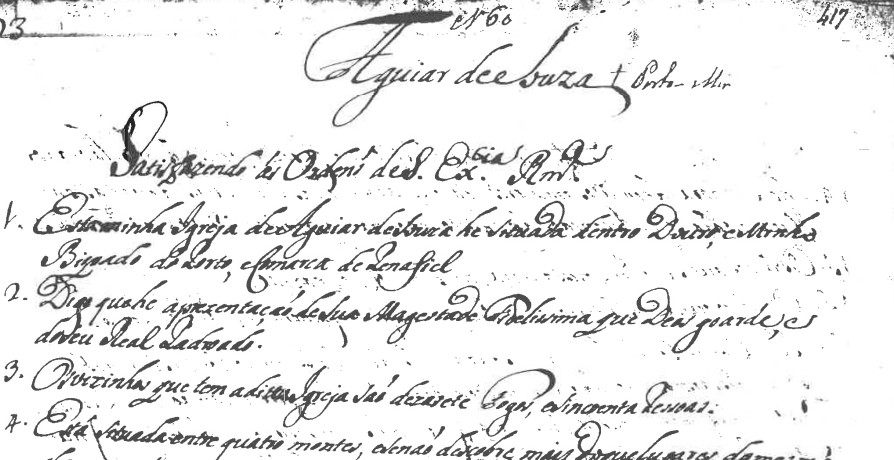 23
Nº 60
417
Aguiar de Souza + Porto
Satisfazendo ás Ordens de S. Ex.cias Rm.as
1. Esta minha Igreja de Aguiar de Souza he situada dentro Douro, e Minho
Bispado do Porto, Comarca de Penafiel
2. Digo que he aprezentação de Sua Magestade Fidelissima que Deos goarde, e
do seu Real Padroado.
3. Os vizinhos que tem a ditta Igreja saó dezasete Fogos, e sincoenta Pessoas.
4. Está situada entre quatro montes, e senaó descobre mais